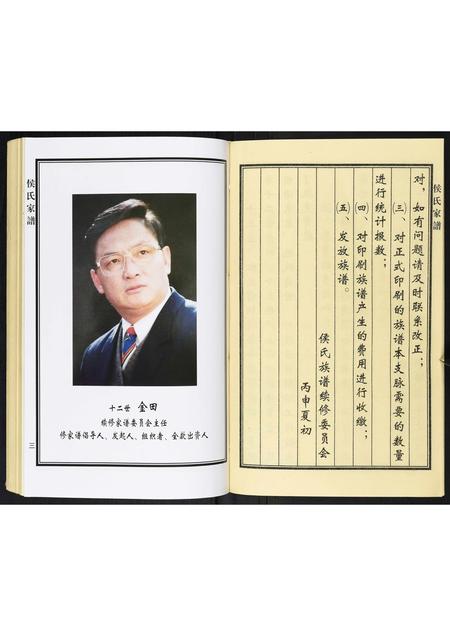 侯氏家譜
对，如有问题请及时联系改正；
㈢、对正式印刷的族谱本支脉需要的数量
进行统计报数；
㈣、对印刷族谱产生的费用进行收缴；
㈤、发放族谱。
侯氏族谱续修委员会
丙申夏初
侯氏家譜
三
十二世 金田
续修家谱委员会主任
修家谱倡导人、发起人、组织者、全款出资人